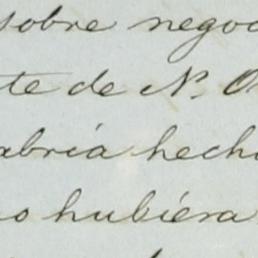 sobre negoc
te de N. O
abria hech
o hubiéra